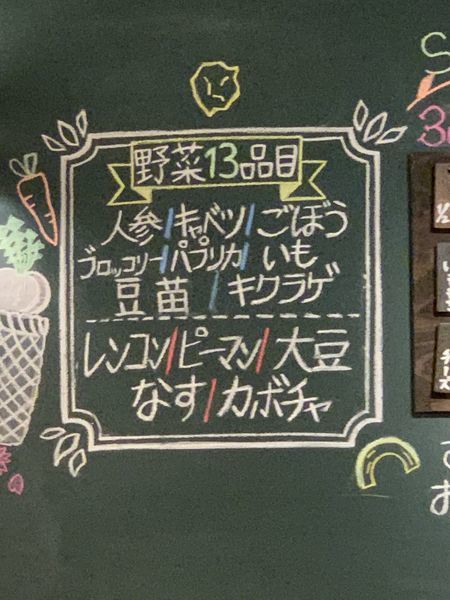 野菜13品目
人参/キャベツ/ごぼう
ブロッコリー/パプリカ/いも
豆苗/キクラゲ
レンコン/ピーマン/大豆
なす/カボチャ
S
3
1/2
チーズ
お